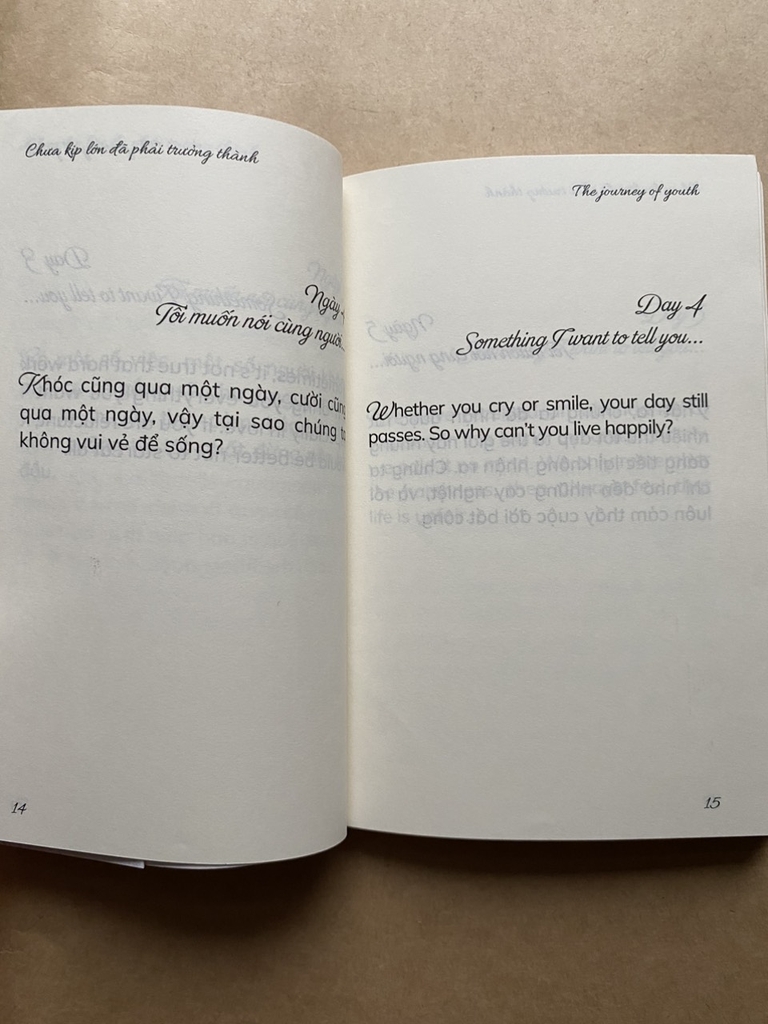 Chưa kịp lớn đã phải trưởng thành
Ngày
Tôi muốn nói cùng người...
Khóc cũng qua một ngày, cười cũng
qua một ngày, vậy tại sao chúng
không vui vẻ để sống?
14
The journey of youth
Day 4
Something I want to tell you...
Whether you cry or smile, your day still
passes. So why can't you live happily?
15